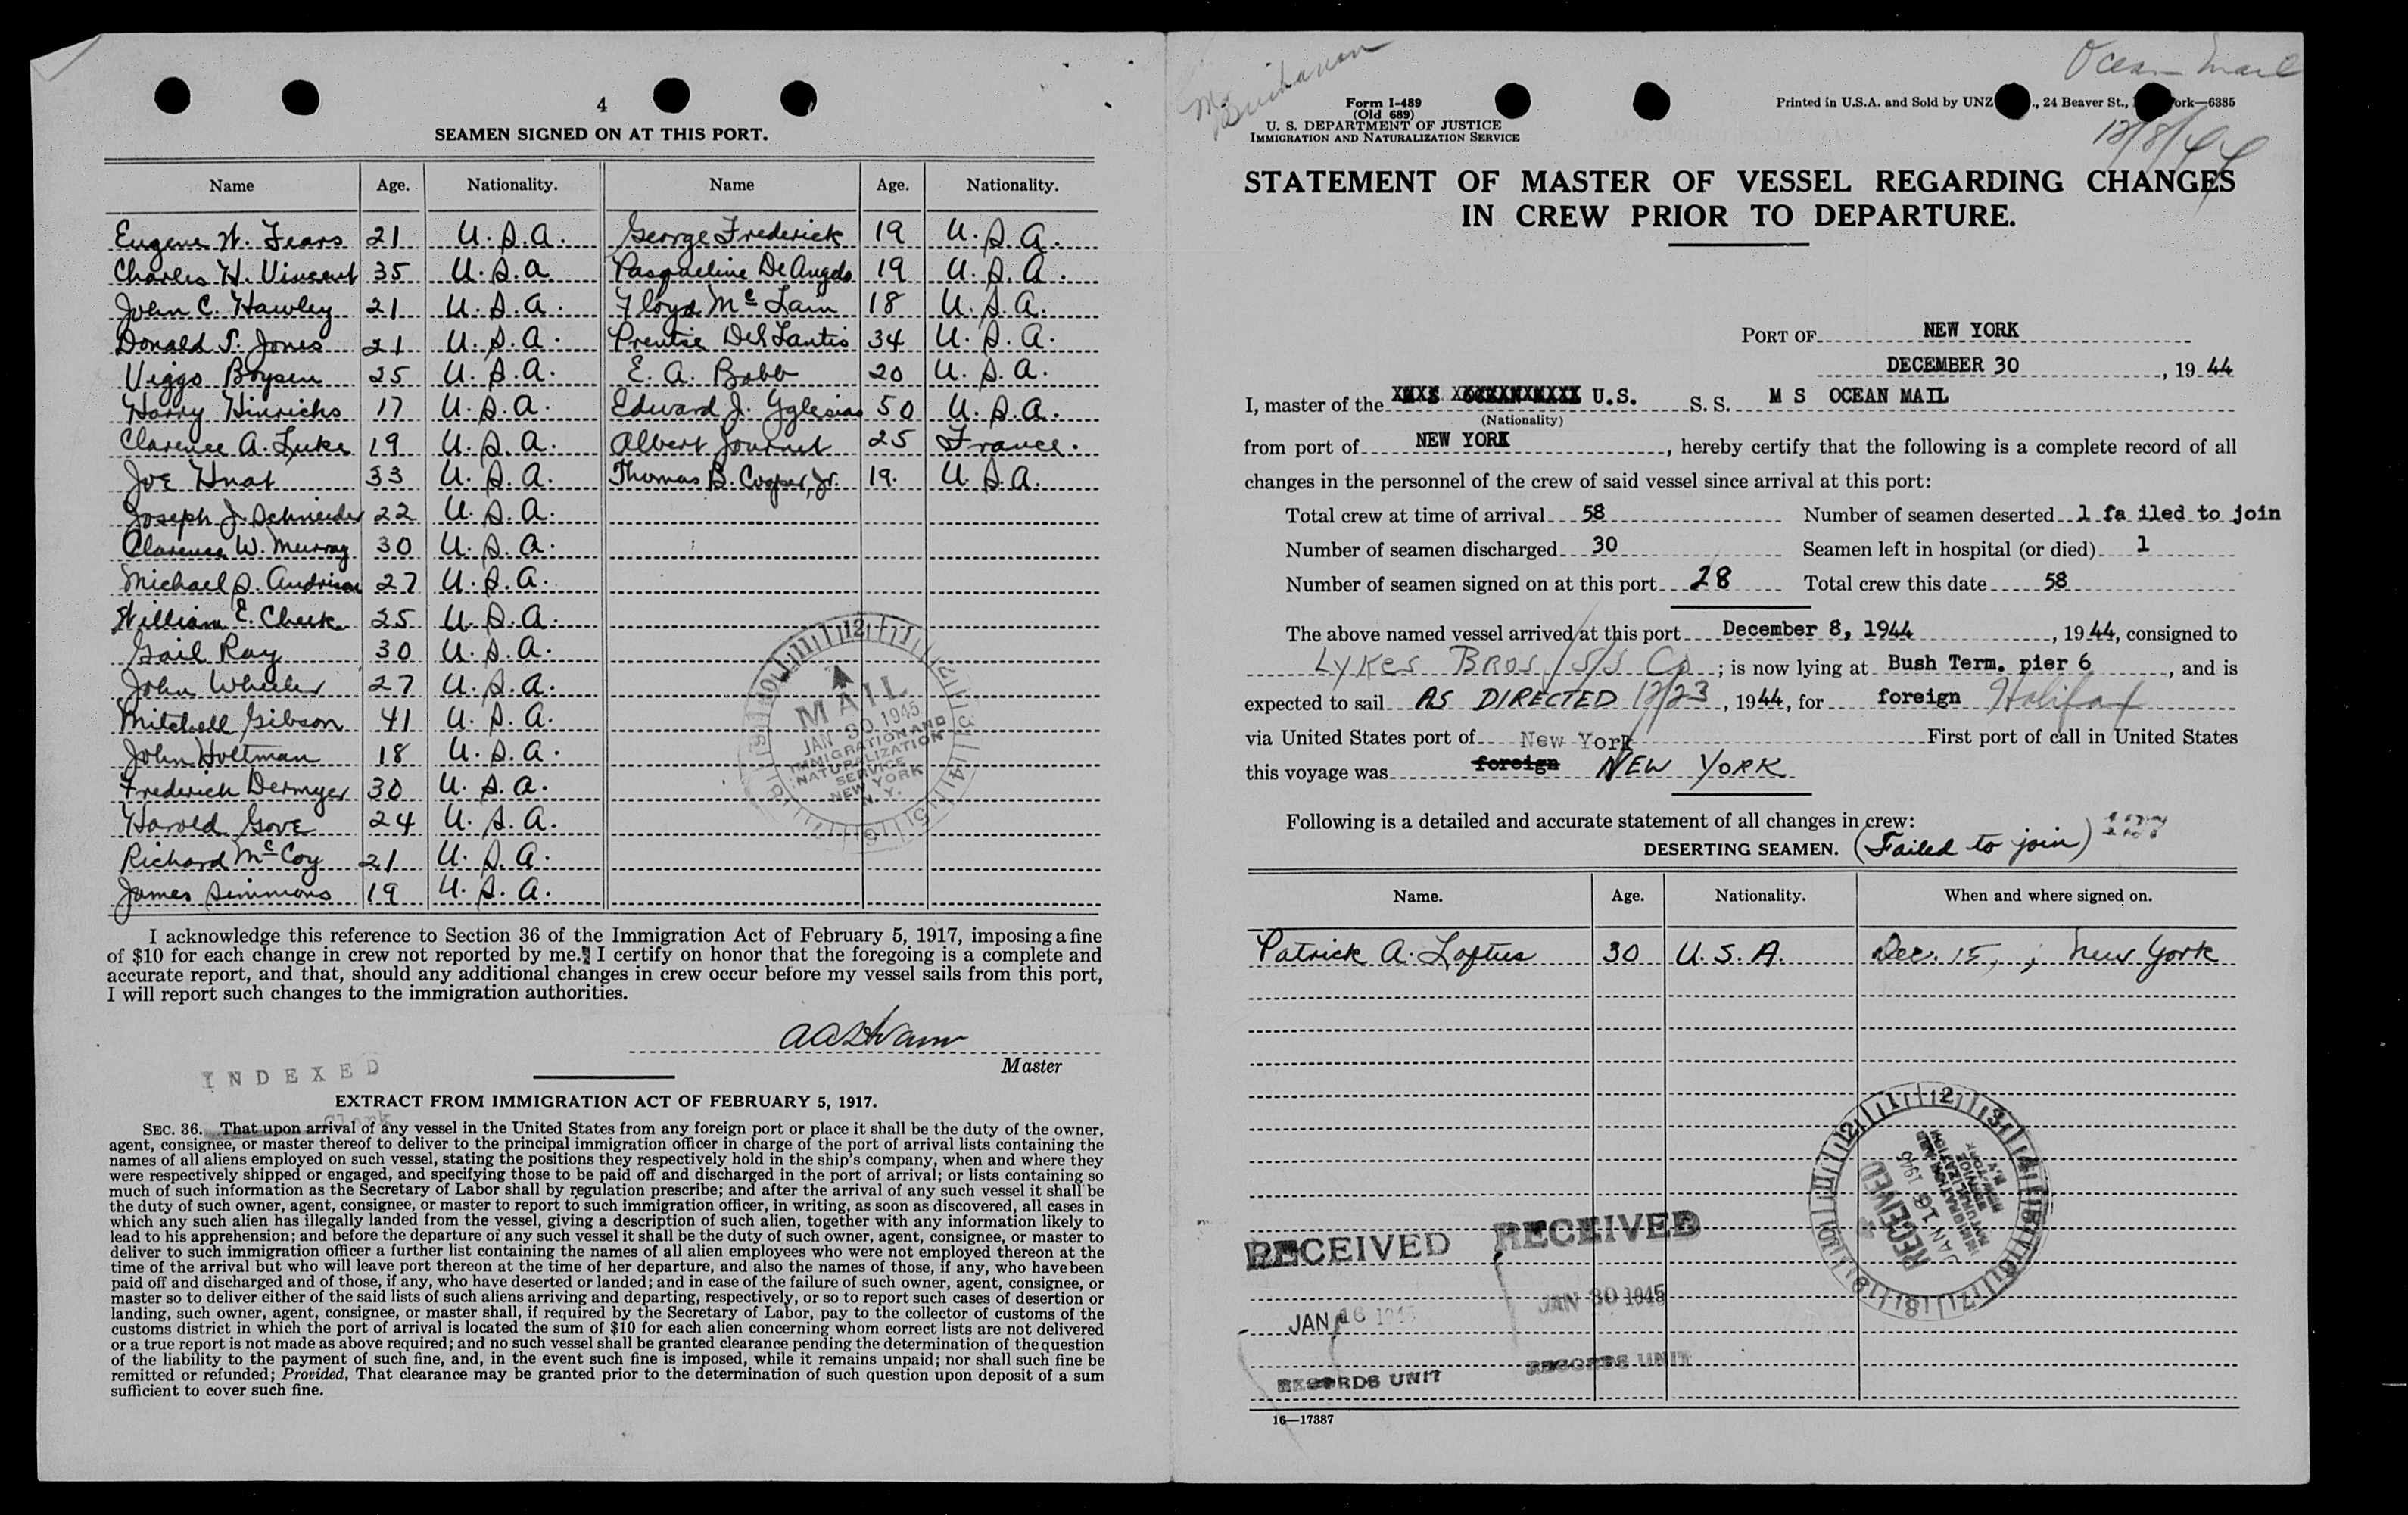 4
SEAMEN SIGNED ON AT THIS PORT.
Name Age. Nationality. Name Age. Nationality.
Eugene W. Fears 21 U.S.A. George Frederick 19 U.S.A.
Charles H. Vincent 35 U.S.A. Pasqueline De Angelo 19 U.S.A.
John C. Hawley 21 U.S.A. Floyd McLain 18 U.S.A.
Donald S. Jones 21 U.S.A. Prentie Del Lantis 34 U.S.A.
Viggo Boysen 25 U.S.A. E. A. Babb 20 U.S.A.
Harry Hinrichs 17 U.S.A. Edward J. Yglesias 50 U.S.A.
Clarence A. Luke 19 U.S.A. Albert Journet 25 France.
Joe Hnat 33 U.S.A. Thomas B. Cooper, Jr. 19. U.S.A.
Joseph J. Schneider 22 U.S.A.
Clarence W. Murray 30 U.S.A.
Michael S. 27 U.S.A.
William E. Cheek 25 U.S.A.
Gail Ray 30 U.S.A.
John Wheeler 27 U.S.A.
Mitchell Gibson 41 U.S.A.
John Holtman 18 U.S.A.
Frederick Dermyer 30 U.S.A.
Harold Gove 24 U.S.A.
Richard McCoy 21 U.S.A.
James Simmons 19 U.S.A.
MAIL
JAN 30 1945
IMMIGRATION AND
NATURALIZATION
SERVICE
NEW YORK
N. Y.
I acknowledge this reference to Section 36 of the Immigration Act of February 5, 1917, imposing a fine
of $10 for each change in crew not reported by me. I certify on honor that the foregoing is a complete and
accurate report, and that, should any additional changes in crew occur before my vessel sails from this port,
I will report such changes to the immigration authorities.
Master
INDEXED
Clerk
EXTRACT FROM IMMIGRATION ACT OF FEBRUARY 5, 1917.
SEC. 36. That upon arrival of any vessel in the United States from any foreign port or place it shall be the duty of the owner,
agent, consignee, or master thereof to deliver to the principal immigration officer in charge of the port of arrival lists containing the
names of all aliens employed on such vessel, stating the positions they respectively hold in the ship's company, when and where they
were respectively shipped or engaged, and specifying those to be paid off and discharged in the port of arrival; or lists containing so
much of such information as the Secretary of Labor shall by regulation prescribe; and after the arrival of any such vessel it shall be
the duty of such owner, agent, consignee, or master to report to such immigration officer, in writing, as soon as discovered, all cases in
which any such alien has illegally landed from the vessel, giving a description of such alien, together with any information likely to
lead to his apprehension; and before the departure of any such vessel it shall be the duty of such owner, agent, consignee, or master to
deliver to such immigration officer a further list containing the names of all alien employees who were not employed thereon at the
time of the arrival but who will leave port thereon at the time of her departure, and also the names of those, if any, who have been
paid off and discharged and of those, if any, who have deserted or landed; and in case of the failure of such owner, agent, consignee, or
master so to deliver either of the said lists of such aliens arriving and departing, respectively, or so to report such cases of desertion or
landing, such owner, agent, consignee, or master shall, if required by the Secretary of Labor, pay to the collector of customs of the
customs district in which the port of arrival is located the sum of $10 for each alien concerning whom correct lists are not delivered
or a true report is not made as above required; and no such vessel shall be granted clearance pending the determination of the question
of the liability to the payment of such fine, and, in the event such fine is imposed, while it remains unpaid; nor shall such fine be
remitted or refunded; Provided, That clearance may be granted prior to the determination of such question upon deposit of a sum
sufficient to cover such fine.
Mr Buchanan
Ocean Mail
12/8/44
Form I-489
(Old 689)
U. S. DEPARTMENT OF JUSTICE
IMMIGRATION AND NATURALIZATION SERVICE
Printed in U.S.A. and Sold by UNZ ., 24 Beaver St., ork—6385
STATEMENT OF MASTER OF VESSEL REGARDING CHANGES
IN CREW PRIOR TO DEPARTURE.
PORT OF NEW YORK
DECEMBER 30, 19 44
I, master of the U.S. S. S. M S OCEAN MAIL
(Nationality)
from port of NEW YORK, hereby certify that the following is a complete record of all
changes in the personnel of the crew of said vessel since arrival at this port:
Total crew at time of arrival 58 Number of seamen deserted 1 fa iled to join
Number of seamen discharged 30 Seamen left in hospital (or died) 1
Number of seamen signed on at this port 28 Total crew this date 58
The above named vessel arrived at this port December 8, 1944, 19 44, consigned to
LYKES BROS S/S Co; is now lying at Bush Term. pier 6, and is
expected to sail AS DIRECTED 12/23, 19 44, for foreign Halifax
via United States port of New York First port of call in United States
this voyage was foreign NEW YORK
Following is a detailed and accurate statement of all changes in crew:
DESERTING SEAMEN. (Failed to join)
Name. Age. Nationality. When and where signed on.
Patrick A. Loftus 30 U.S.A. Dec. 15, ; New York
RECEIVED
JAN 16 1945
IMMIGRATION AND
NATURALIZATION
SERVICE
NEW YORK
N. Y.
RECEIVED RECEIVED
JAN 16 1945 JAN 30 1945
RECORDS UNIT RECORDS UNIT
16—17387